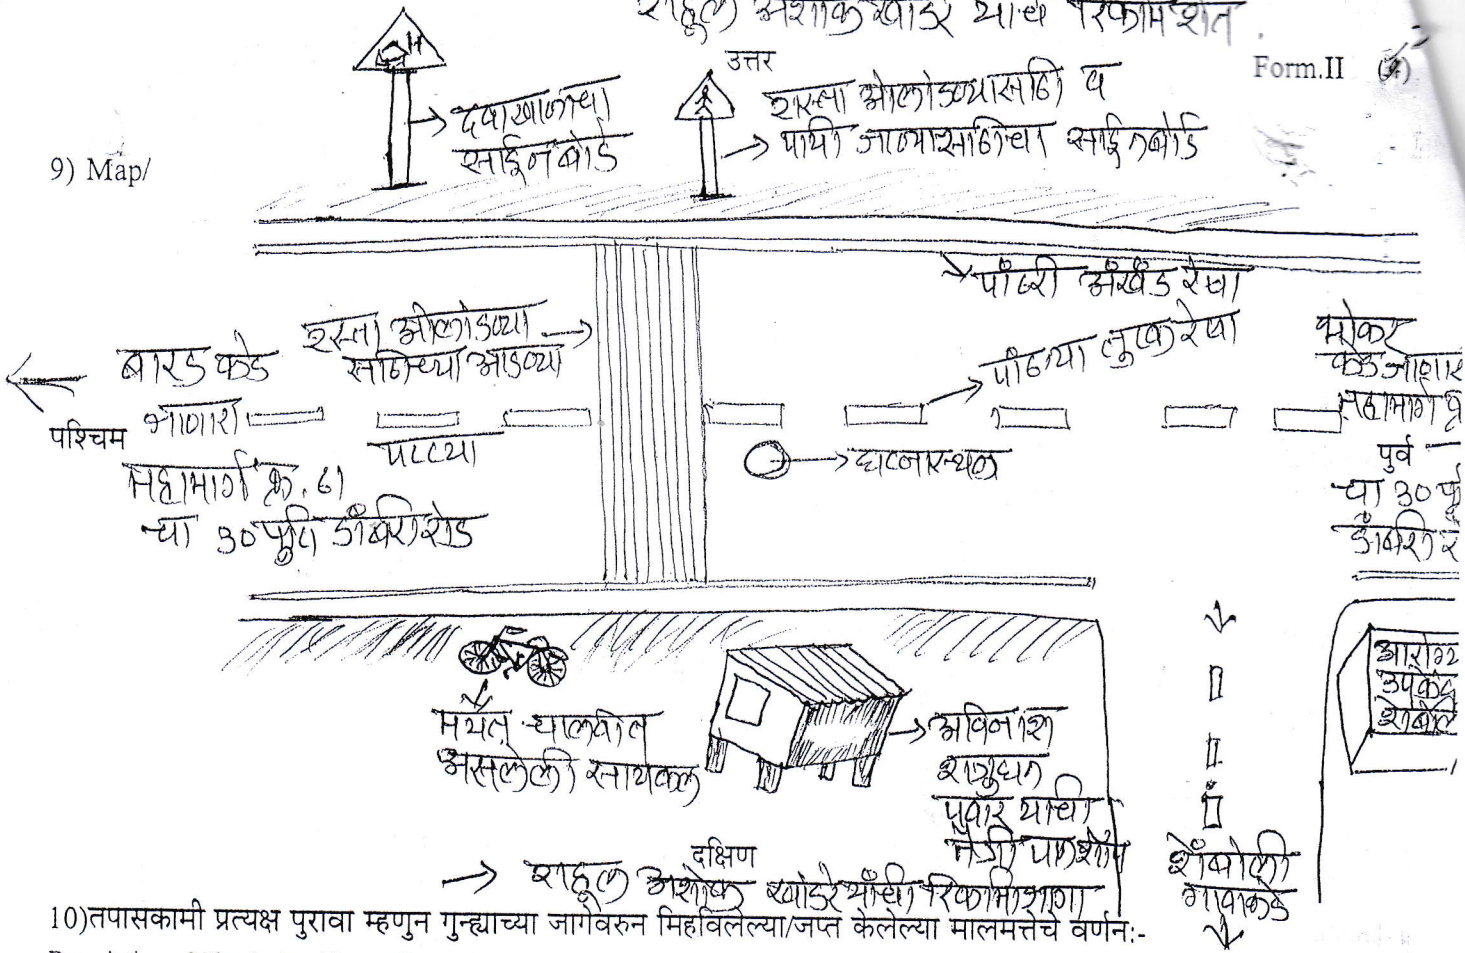 राहुल अशोक खांडरे यांचे रिकामे शेत.
Form.II
उत्तर
दवाखानाचा
साईन बोर्ड
रस्ता ओलांडण्यासाठि व
पायी जाण्यासाठिचा साईनबोर्ड
9) Map/
पांढरी अखंड रेषा
रस्ता ओलांडण्या
साठिच्या आडव्या
पट्ट्या
पांढऱ्या तुटक रेषा
बारड कडे
जाणारा
पश्चिम
महामार्ग क्र. 61
चा 30 फुटि डांबरी रोड
घटनास्थळ
भोकर
कडे जाणार
महामार्ग क्र
पुर्व
चा 30 फु
डांबरी र
मयत चालवीत
असलेली सायकल
अविनाश
शत्रुघन
पवार यांची
आरोग्य
उपकेंद्र
शेंबोली
शेंबोली
गावाकडे
दक्षिण
राहूल अशोक खांडरे यांची रिकामी जागा
10)तपासकामी प्रत्यक्ष पुरावा म्हणुन गुन्ह्याच्या जागेवरुन मिहविलेल्या/जप्त केलेल्या मालमत्तेचे वर्णन:-